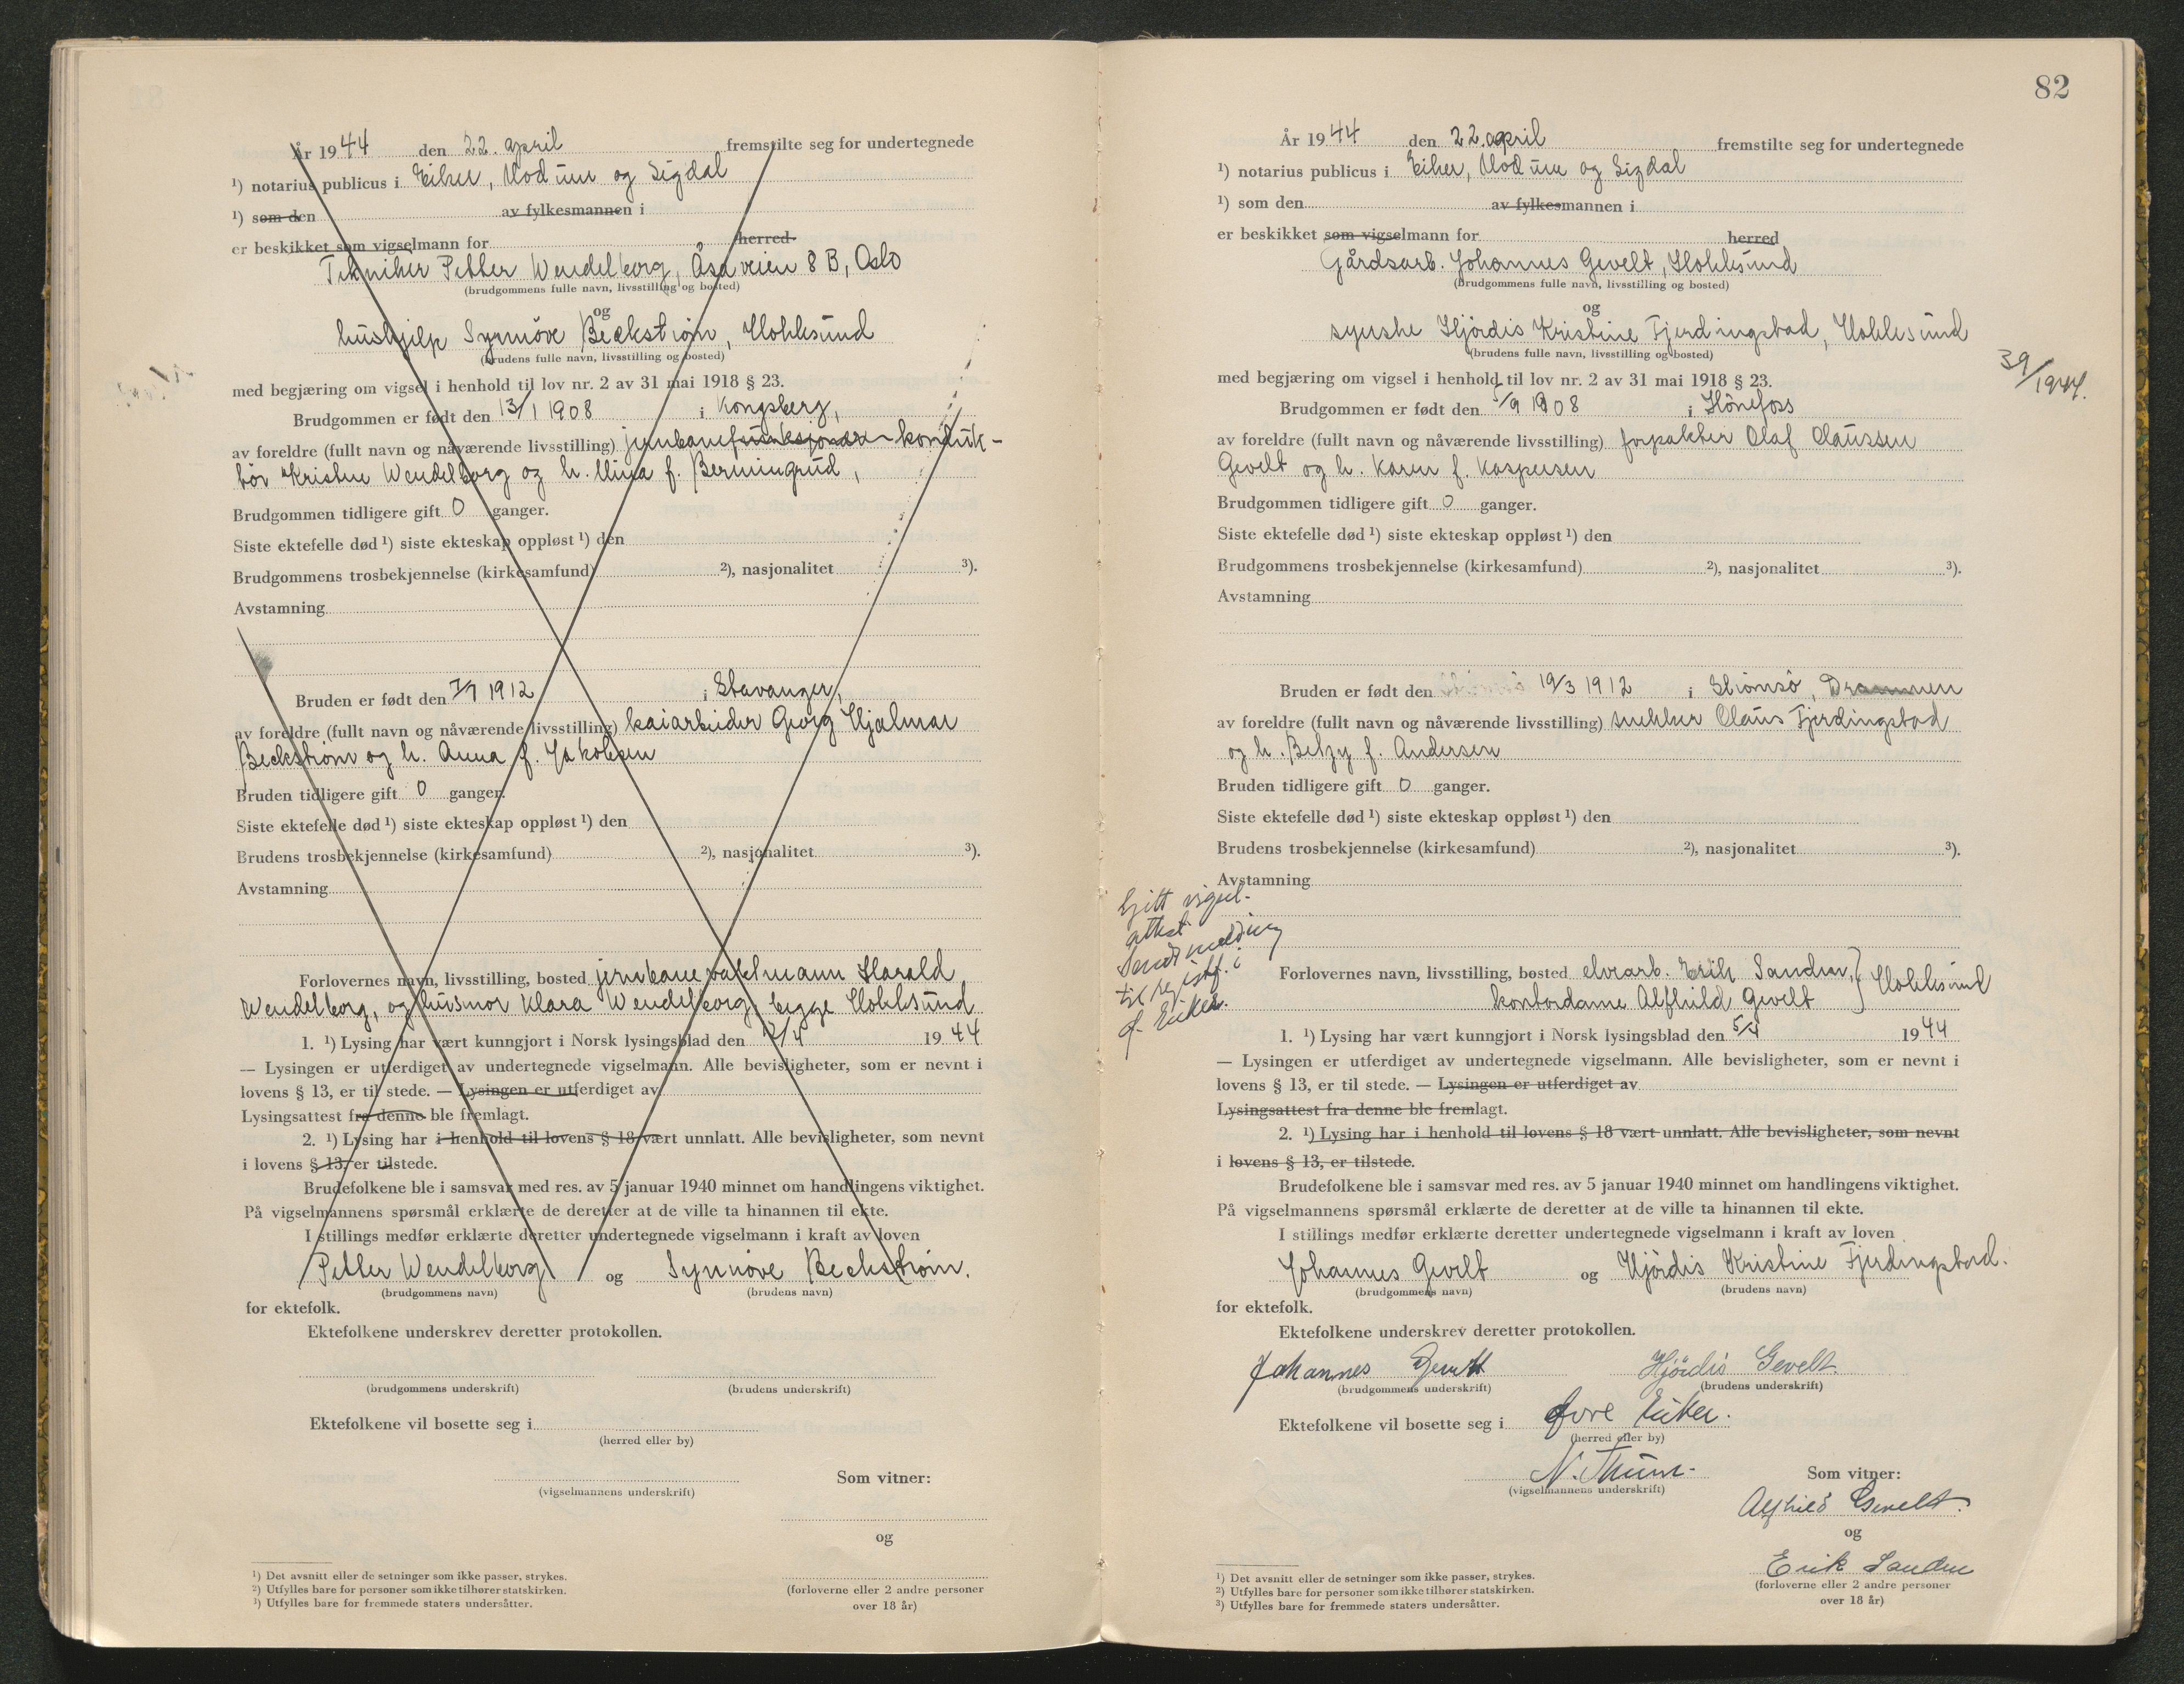 År 1944 den 22. april fremstilte seg for undertegnede
1) notarius publicus i Eiker, Modum og Sigdal
1) som den av fylkesmannen i
er beskikket som vigselmann for herred
Tekniker Petter Wendelborg, Åsaveien 8 B, Oslo
(brudgommens fulle navn, livsstilling og bosted)
og
hushjelp Synnöve Beckstrøm, Hokksund
(brudens fulle navn, livsstilling og bosted)
med begjæring om vigsel i henhold til lov nr. 2 av 31 mai 1918 § 23.
Brudgommen er født den 13/1 1908 i Kongsberg,
av foreldre (fullt navn og nåværende livsstilling) jernbanefunksjonær - konduk-
tør Kristen Wendelborg og h. f.
Brudgommen tidligere gift 0 ganger.
Siste ektefelle død 1) siste ekteskap oppløst 1) den
Brudgommens trosbekjennelse (kirkesamfund) 2), nasjonalitet 3).
Avstamning
Bruden er født den 7/7 1912 i Stavanger,
av foreldre (fullt navn og nåværende livsstilling) kaiarbeider Georg Hjalmar
Beckstrøm og h. Anna f. Jakobsen
Bruden tidligere gift 0 ganger.
Siste ektefelle død 1) siste ekteskap oppløst 1) den
Brudens trosbekjennelse (kirkesamfund) 2), nasjonalitet 3).
Avstamning
Forlovernes navn, livsstilling, bosted jernbanevaktmann Harald
Wendelborg, og husmor Klara Wendelborg, begge Hokksund
1. 1) Lysing har vært kunngjort i Norsk lysingsblad den 12/4 1944
— Lysingen er utferdiget av undertegnede vigselmann. Alle bevisligheter, som er nevnt i
lovens § 13, er til stede. — Lysingen er utferdiget av
Lysingsattest fra denne ble fremlagt.
2. 1) Lysing har i henhold til lovens § 18 vært unnlatt. Alle bevisligheter, som nevnt
i lovens § 13, er tilstede.
Brudefolkene ble i samsvar med res. av 5 januar 1940 minnet om handlingens viktighet.
På vigselmannens spørsmål erklærte de deretter at de ville ta hinannen til ekte.
I stillings medfør erklærte deretter undertegnede vigselmann i kraft av loven
Petter Wendelborg og Synnöve Beckstrøm.
(brudgommens navn) (brudens navn)
for ektefolk.
Ektefolkene underskrev deretter protokollen.
(brudgommens underskrift) (brudens underskrift)
Ektefolkene vil bosette seg i
(herred eller by)
Som vitner:
(vigselmannens underskrift)
og
1) Det avsnitt eller de setninger som ikke passer, strykes.
2) Utfylles bare for personer som ikke tilhører statskirken.
3) Utfylles bare for fremmede staters undersåtter.
(forloverne eller 2 andre personer
over 18 år)
82
År 1944 den 22. april fremstilte seg for undertegnede
1) notarius publicus i Eiker, Modum og Sigdal
1) som den av fylkesmannen i
er beskikket som vigselmann for herred
Gårdsarb. Johannes Gevelt, Hokksund
(brudgommens fulle navn, livsstilling og bosted)
og
syerske Hjördis Kristine Fjerdingstad, Hokksund
(brudens fulle navn, livsstilling og bosted)
39/1944.
med begjæring om vigsel i henhold til lov nr. 2 av 31 mai 1918 § 23.
Brudgommen er født den 5/9 1908 i Hönefoss
av foreldre (fullt navn og nåværende livsstilling) forpakter Olaf Claussen
Gevelt og h. Karen f. Kaspersen
Brudgommen tidligere gift 0 ganger.
Siste ektefelle død 1) siste ekteskap oppløst 1) den
Brudgommens trosbekjennelse (kirkesamfund) 2), nasjonalitet 3).
Avstamning
Bruden er født den 19/3 1912 i Strømsö, Drammen
av foreldre (fullt navn og nåværende livsstilling) snekker Claus Fjerdingstad
og h. Betzy f. Andersen
Bruden tidligere gift 0 ganger.
Siste ektefelle død 1) siste ekteskap oppløst 1) den
Brudens trosbekjennelse (kirkesamfund) 2), nasjonalitet 3).
Avstamning
Gitt vigsel-
attest
Sendt melding
til regist. i
Ø. Eiker.
Forlovernes navn, livsstilling, bosted elvearb. Erik Sanden, } Hokksund
kontordame Alfhild Gevelt
1. 1) Lysing har vært kunngjort i Norsk lysingsblad den 5/4 1944
— Lysingen er utferdiget av undertegnede vigselmann. Alle bevisligheter, som er nevnt i
lovens § 13, er til stede. — Lysingen er utferdiget av
Lysingsattest fra denne ble fremlagt.
2. 1) Lysing har i henhold til lovens § 18 vært unnlatt. Alle bevisligheter, som nevnt
i lovens § 13, er tilstede.
Brudefolkene ble i samsvar med res. av 5 januar 1940 minnet om handlingens viktighet.
På vigselmannens spørsmål erklærte de deretter at de ville ta hinannen til ekte.
I stillings medfør erklærte deretter undertegnede vigselmann i kraft av loven
Johannes Gevelt og Hjördis Kristine Fjerdingstad.
(brudgommens navn) (brudens navn)
for ektefolk.
Ektefolkene underskrev deretter protokollen.
Johannes Gevelt Hjördis Gevelt.
(brudgommens underskrift) (brudens underskrift)
Ektefolkene vil bosette seg i Øvre Eiker.
(herred eller by)
N. Thune. Som vitner:
(vigselmannens underskrift)
Alfhild Gevelt.
og
Erik Sanden
1) Det avsnitt eller de setninger som ikke passer, strykes.
2) Utfylles bare for personer som ikke tilhører statskirken.
3) Utfylles bare for fremmede staters undersåtter.
(forloverne eller 2 andre personer
over 18 år)